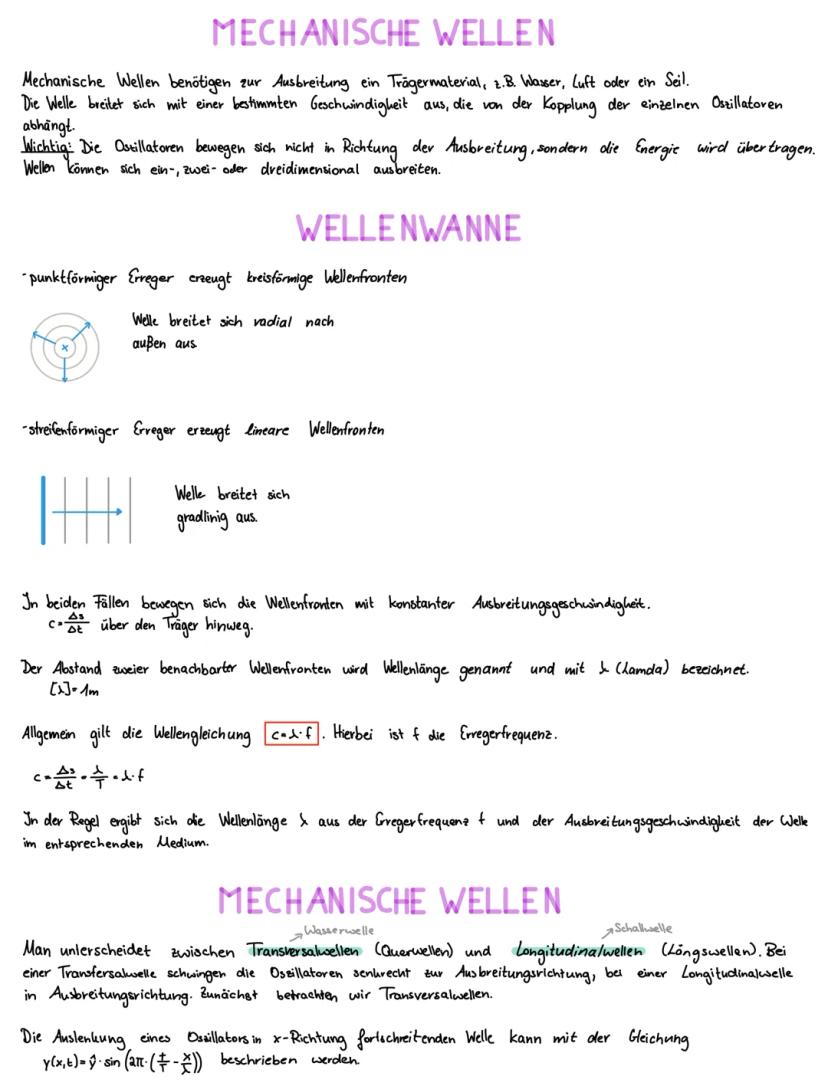 MECHANISCHE WELLEN
Mechanische Wellen benötigen zur Ausbreitung ein Trägermaterial, z.B. Wasser, Luft oder ein Seil.
Die Welle breitet sich mit einer bestimmten Geschwindigkeit aus, die von der Kopplung der einzelnen Oszillatoren
abhängt.
Wichtig: Die Oszillatoren bewegen sich nicht in Richtung der Ausbreitung, sondern die Energie wird übertragen.
Wellen können sich ein-, zwei- oder dreidimensional ausbreiten.
WELLENWANNE
-punktförmiger Erreger erzeugt kreisförmige Wellenfronten
Welle breitet sich radial nach
außen aus.
-streifenförmiger Erreger erzeugt lineare Wellenfronten
Welle breitet sich
gradlinig aus.
In beiden Fällen bewegen sich die Wellenfronten mit konstanter Ausbreitungsgeschwindigkeit.
c = Δs/Δt über den Träger hinweg.
Der Abstand zweier benachbarter Wellenfronten wird Wellenlänge genannt und mit λ (Lamda) bezeichnet.
[λ] = 1m
Allgemein gilt die Wellengleichung c = λ · f. Hierbei ist f die Erregerfrequenz.
c = Δs/Δt = λ/T = λ · f
In der Regel ergibt sich die Wellenlänge λ aus der Erregerfrequenz f und der Ausbreitungsgeschwindigkeit der Welle
im entsprechenden Medium.
MECHANISCHE WELLEN
Wasserwelle Schallwelle
Man unterscheidet zwischen Transversalwellen (Querwellen) und Longitudinalwellen (Längswellen). Bei
einer Transfersalwelle schwingen die Oszillatoren senkrecht zur Ausbreitungsrichtung, bei einer Longitudinalwelle
in Ausbreitungsrichtung. Zunächst betrachten wir Transversalwellen.
Die Auslenkung eines Oszillators in x-Richtung fortschreitenden Welle kann mit der Gleichung
y(x,t) = ŷ · sin (2π · (t/T - x/λ)) beschrieben werden.